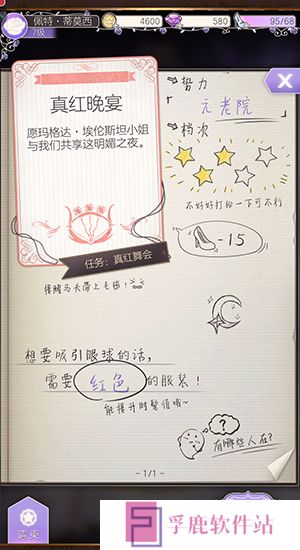 佩特·蒂莫西
7级
4600
580
95/68
真红晚宴
愿玛格达·埃伦斯坦小姐
与我们共享这明媚之夜。
任务：真红舞会
势力
元老院
档次
不好好打扮一下可不行
-15
提醒马夫带上毛毯！
想要吸引眼球的话，
需要 红色 的服装！
能提升时髦值哦~
?
有哪些人在？
-1/1-
请柬
孚鹿软件站